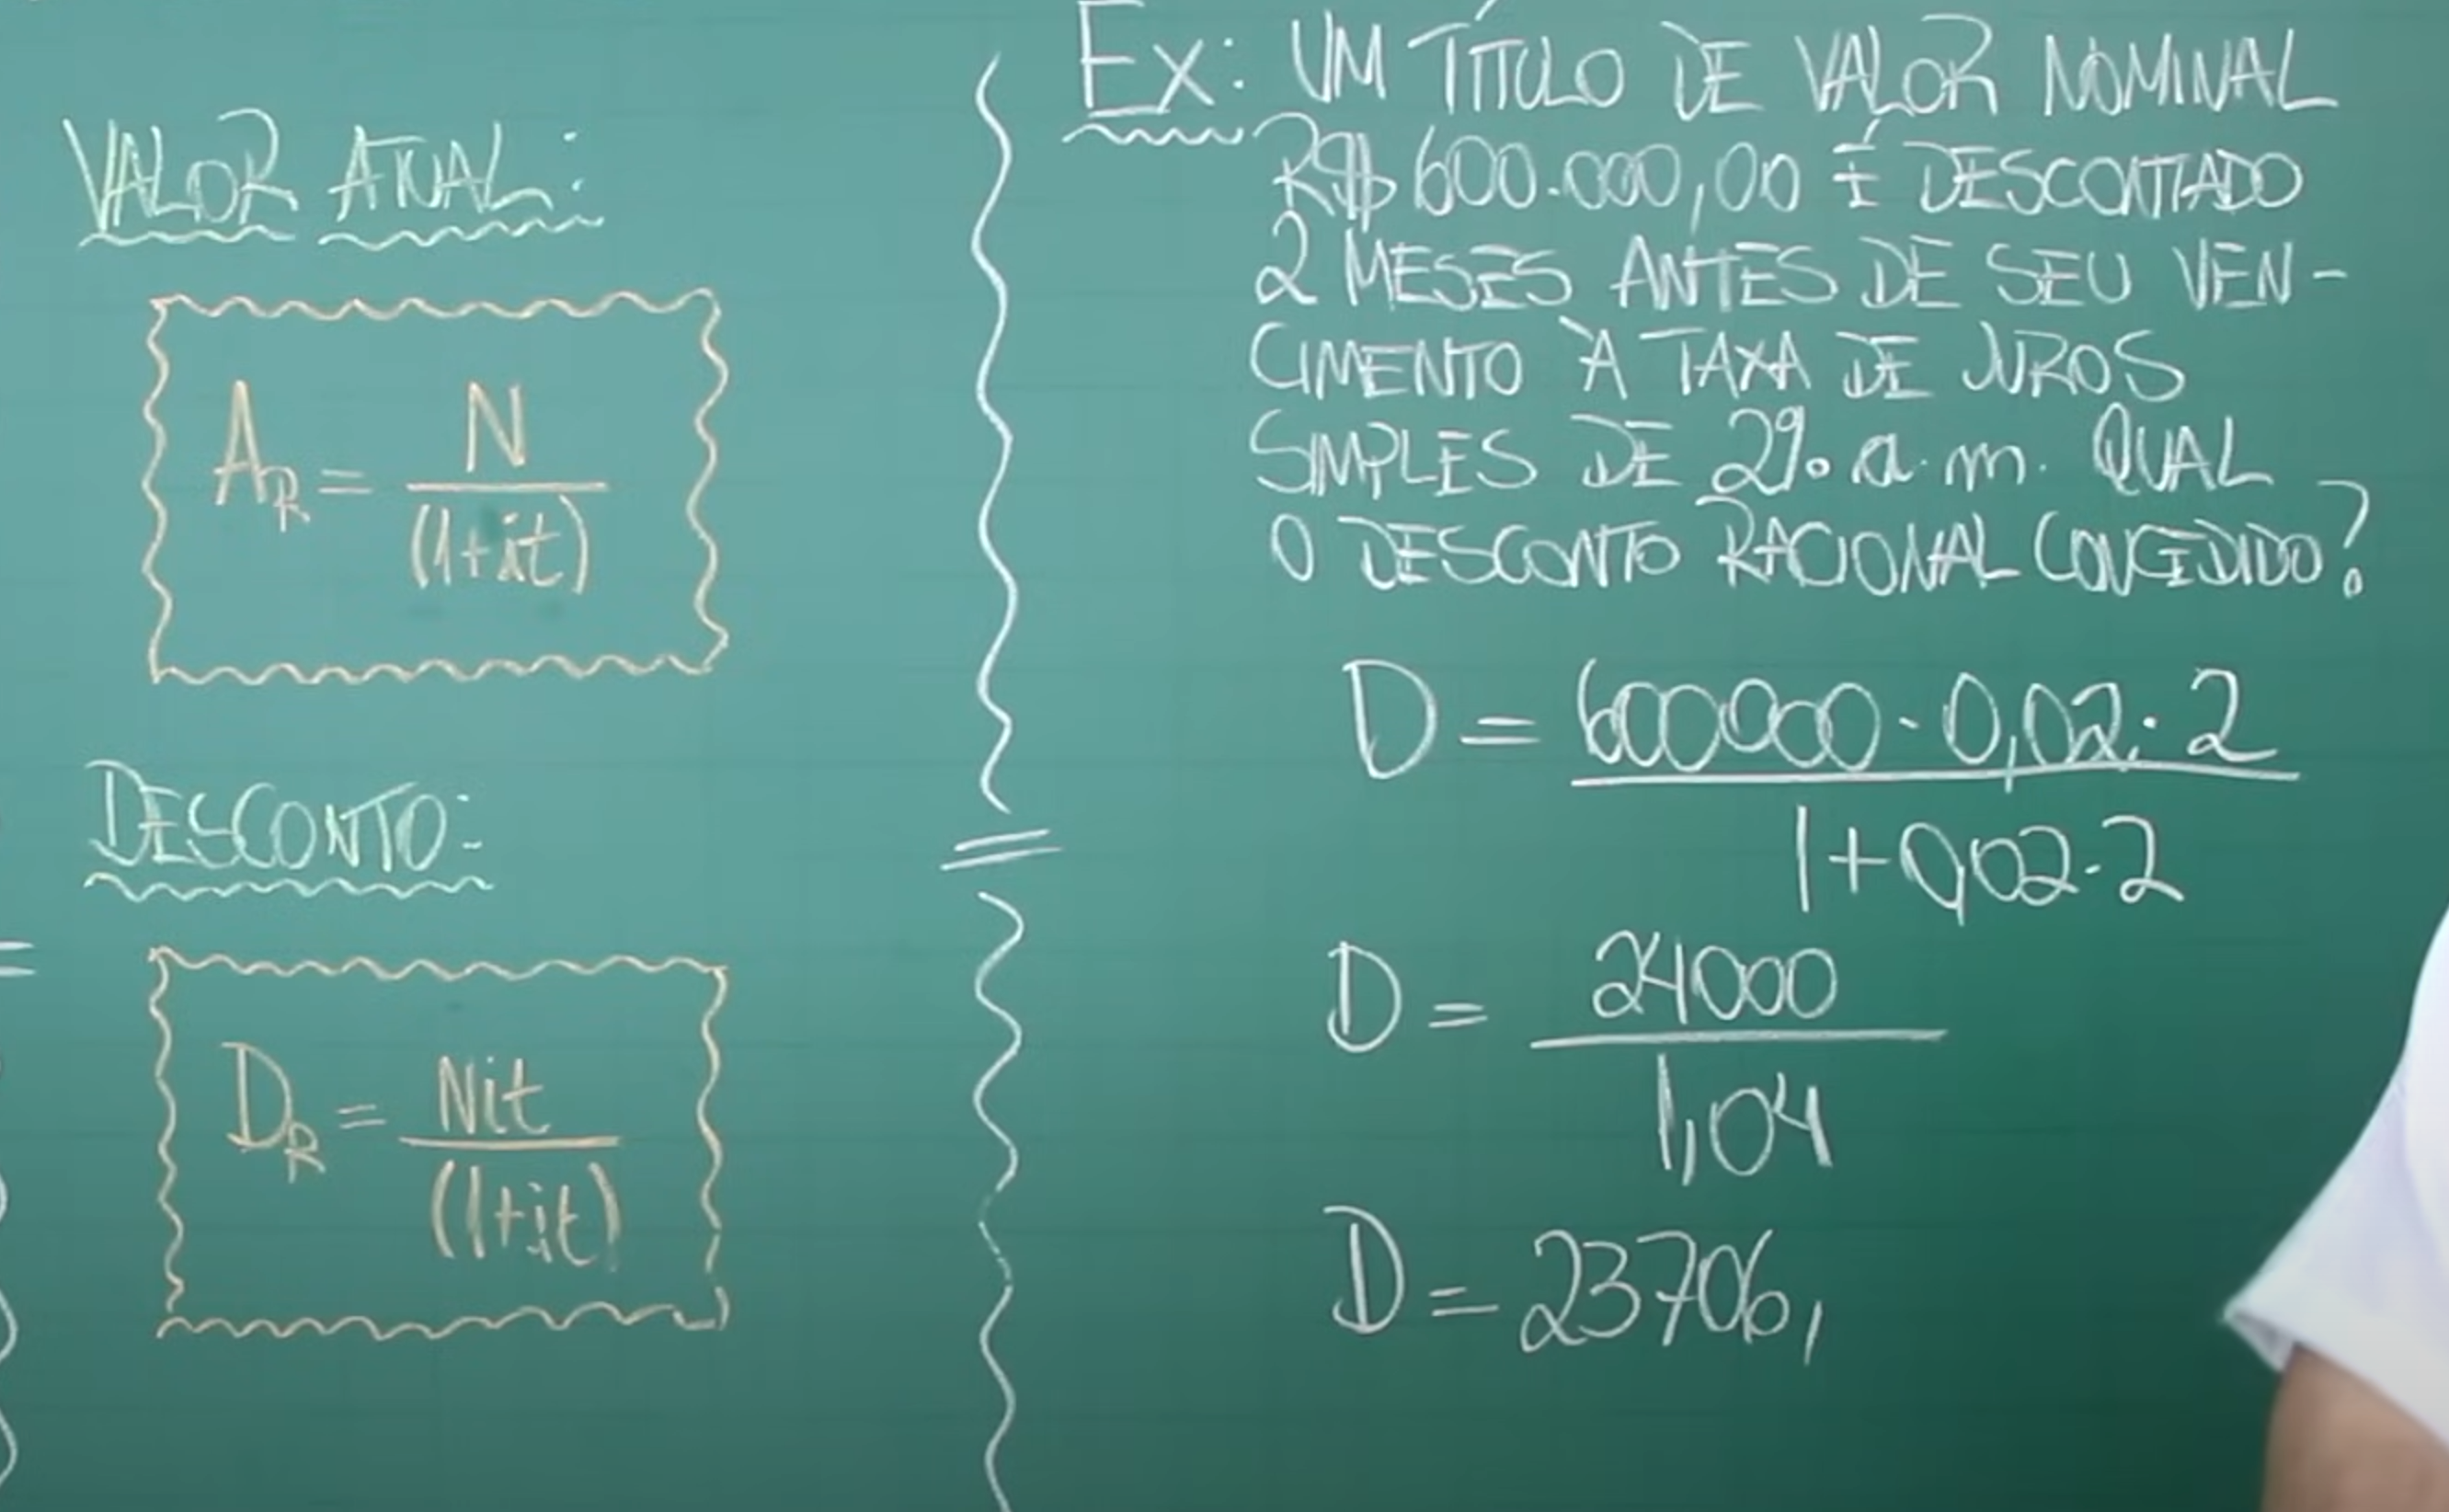 VALOR ATUAL:
A_R = N
(1+it)
DESCONTO:
D_R = Nit
(1+it)
Ex: UM TÍTULO DE VALOR NOMINAL
R$ 600.000,00 É DESCONTADO
2 MESES ANTES DE SEU VEN-
CIMENTO À TAXA DE JUROS
SIMPLES DE 2% a.m. QUAL
O DESCONTO RACIONAL CONCEDIDO?
D = 600000 · 0,02 · 2
1+0,02·2
D = 24000
1,04
D = 23706,